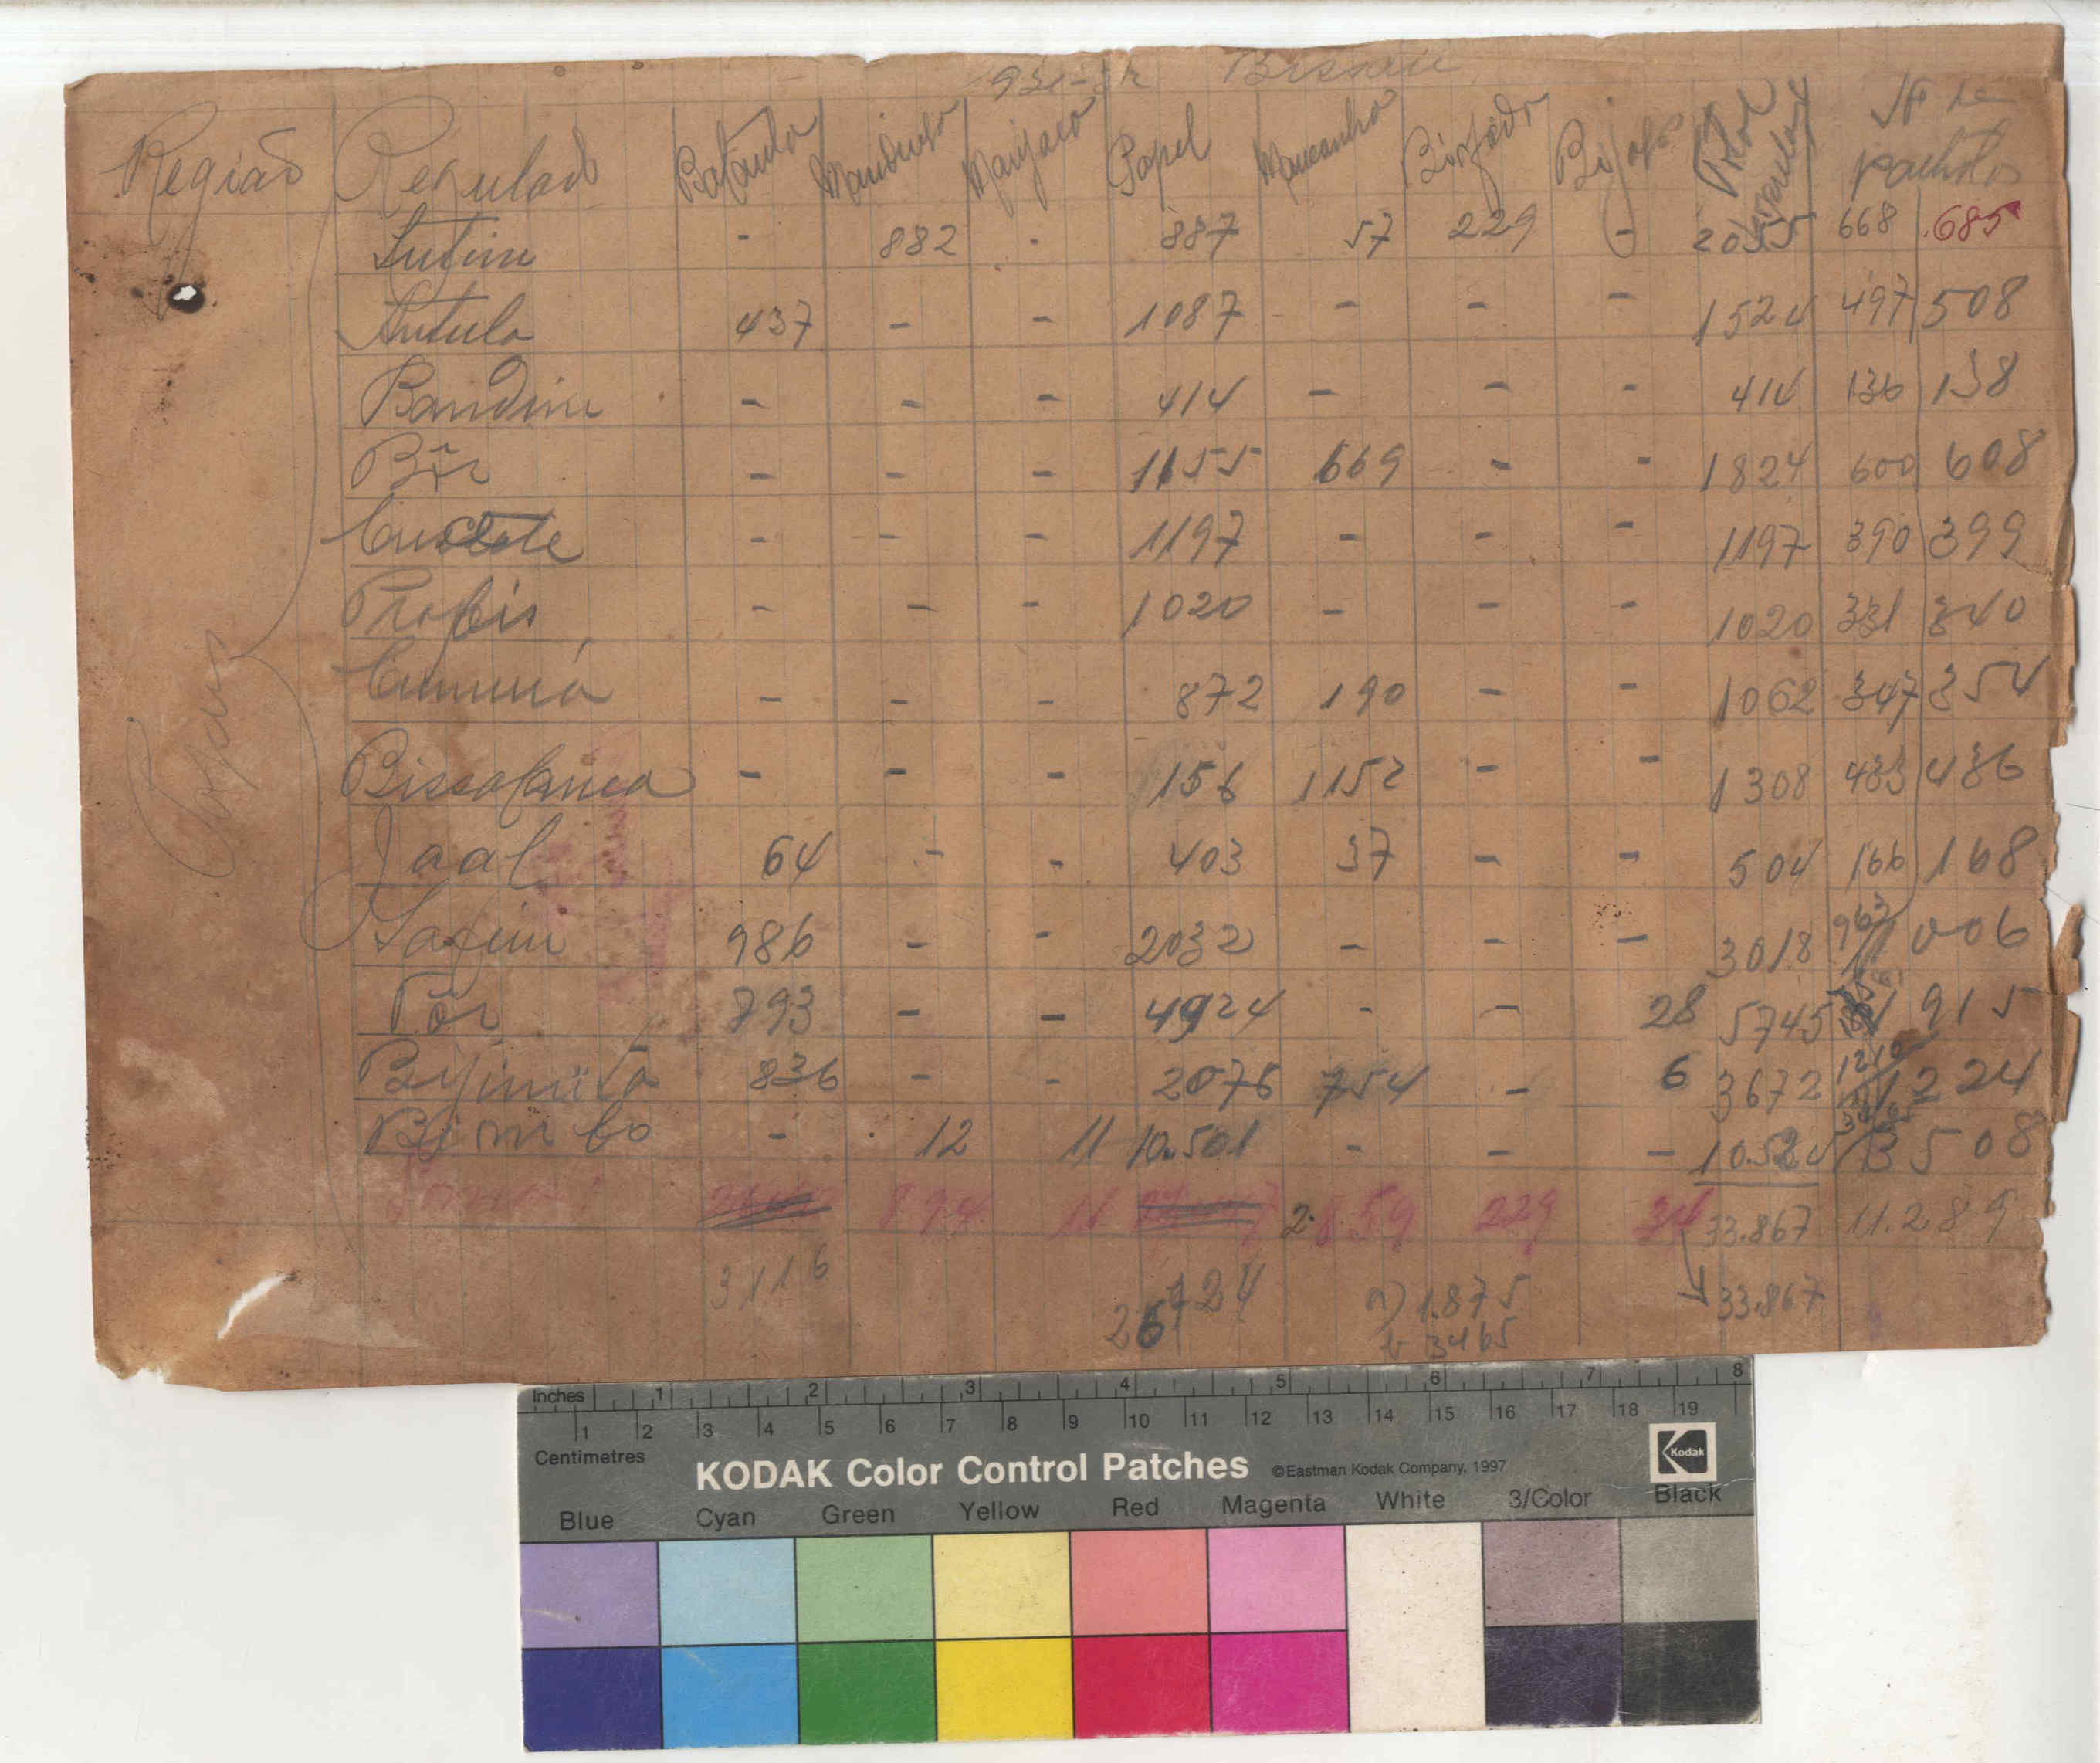 931-32 Bissau
Região Regulado Balanta Mandinga Manjaco Papel Mancanha Biafada Bijagó Total Nº de palhotas
Intim - 882 - 887 57 229 - 2055 668 685
Antula 437 - - 1087 - - - 1524 497 508
Bandim - - - 414 - - - 414 136 138
Bôr - - - 1155 669 - - 1824 600 608
Cussete - - - 1197 - - - 1197 390 399
Prabis - - - 1020 - - - 1020 331 340
Cumurá - - - 872 190 - - 1062 347 354
Bissalanca - - - 156 1152 - - 1308 433 436
Jaal 64 - - 403 37 - - 504 166 168
Safim 986 - - 2032 - - - 3018 963 1006
Tôr 793 - - 4924 - - 28 5745 1915
Bijimita 836 - - 2076 754 - 6 3672 1210 1224
Bijimita - 12 11 10.501 - - - 10.524 3508
Papeis
Soma 894 11 2.859 229 34 33.867 11.289
3116 26724 a) 1.875 33.867
b 3465
Inches 1 2 3 4 5 6 7 8
1 2 3 4 5 6 7 8 9 10 11 12 13 14 15 16 17 18 19
Centimetres
KODAK Color Control Patches ©Eastman Kodak Company, 1997 Kodak
Blue Cyan Green Yellow Red Magenta White 3/Color Black